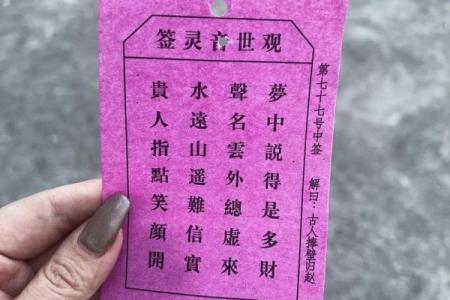 观世音灵签
第七十七号中签 解曰：古人捧壁归赵
夢中説得是多財
聲名雲外總虚來
水遠山遥難信實
貴人指點笑顏開